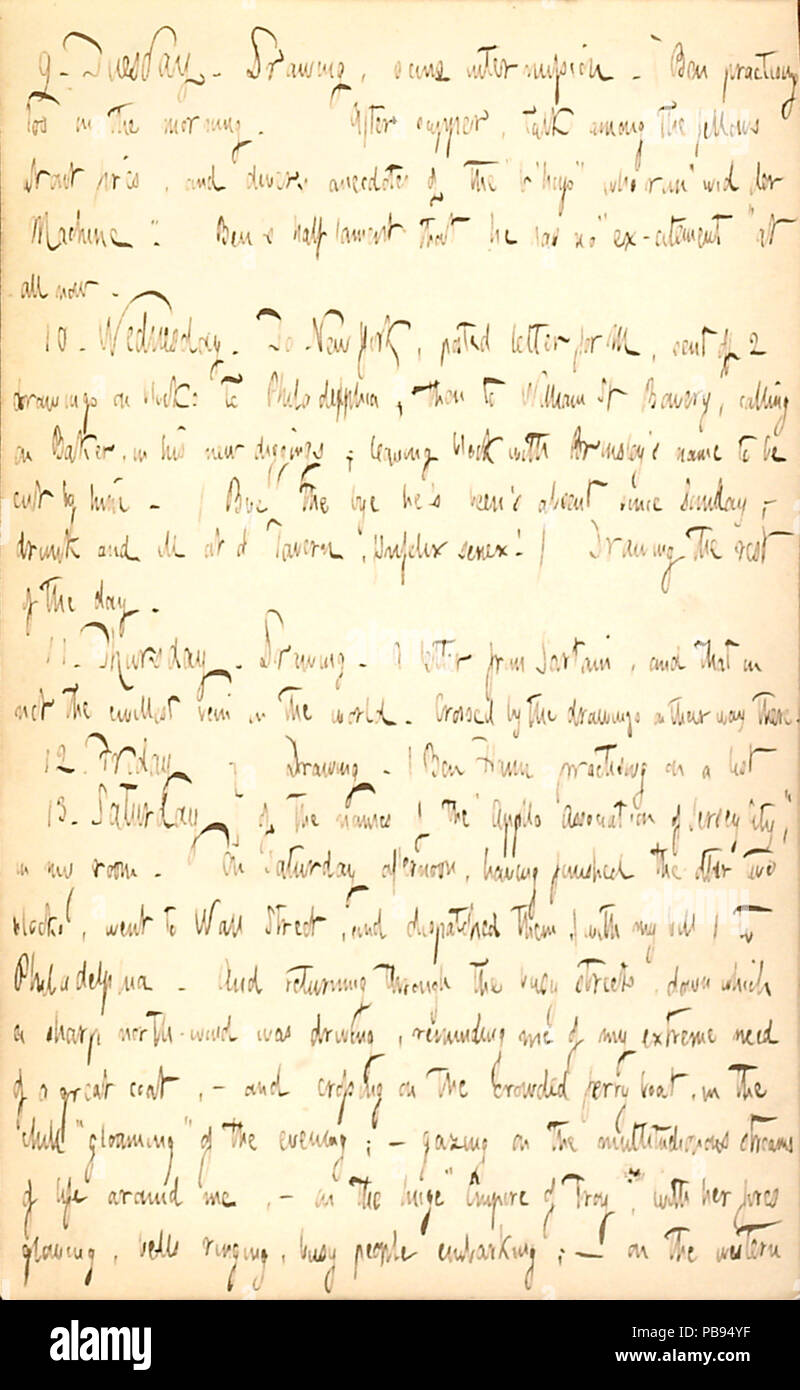 9. Tuesday. Drawing, sans intermission. (Ben practising
too in the morning. After supper, talk among the fellows
about fires, and divers anecdotes of the "b'hoys" who run "wid der
Machine". Ben's half lament that he has no "ex-citement" at
all now.
10. Wednesday. To New York, posted letter for M, sent off 2
drawings on blocks to Philadelphia, then to William St Bowery, calling
on Baker, in his new diggings; leaving block with Ormsby's name to be
cut by him. (Bye the bye he's been absent since Sunday,
drunk and ill at a Tavern, Infelix senex!) Drawing the rest
of the day.
11. Thursday. Drawing. A letter from Sartain, and that in
not the civillest vein in the world. Crossed by the drawings on their way there.
12. Friday } Drawing. (Ben Hann practising on a list
13. Saturday } of the names of the "Appllo Association of Jersey City,"
in my room. On Saturday afternoon, having finished the other two
blocks, went to Wall Street, and dispatched them, (with my bill) to
Philadelphia. And returning through the busy streets, down which
a sharp north-wind was driving, reminding me of my extreme need
of a great coat, - and crossing on the crowded ferry boat, in the
chill "gloaming" of the evening; - gazing on the multitudionous streams
of life around me, - on the huge "Empire of Troy", with her fires
glowing, bells ringing, busy people embarking; - on the western
alamy
Image ID: PB94YF
www.alamy.com